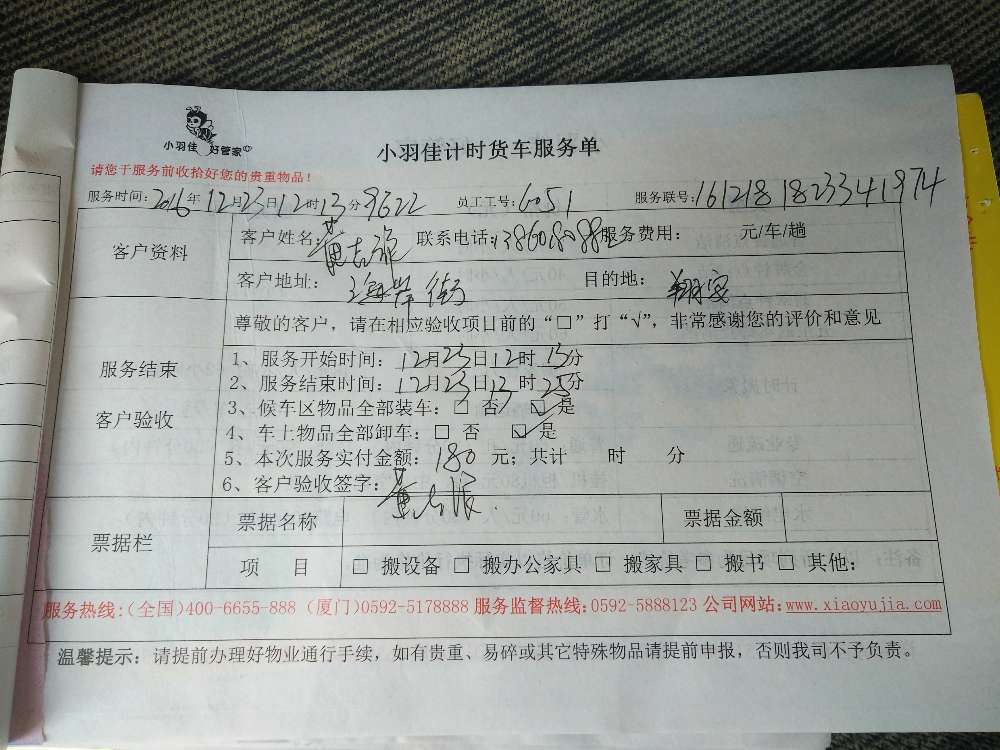 小羽佳 好管家
小羽佳计时货车服务单
请您于服务前收拾好您的贵重物品！
服务时间：2016年12月23日12时13分9622 员工工号：6051 服务联号：161218182334 1974
客户资料
客户姓名：董志 联系电话： 服务费用： 元/车/趟
客户地址： 街 目的地：翔安
尊敬的客户，请在相应验收项目前的“□”打“√”，非常感谢您的评价和意见
服务结束
客户验收
1、服务开始时间：12月23日12时15分
2、服务结束时间：12月23日13时25分
3、候车区物品全部装车：□ 否 ☑ 是
4、车上物品全部卸车：□ 否 ☑ 是
5、本次服务实付金额：180 元；共计 时 分
6、客户验收签字：董志
票据栏
票据名称 票据金额
项 目 □ 搬设备 □ 搬办公家具 □ 搬家具 □ 搬书 □ 其他：
服务热线：(全国)400-6655-888 (厦门)0592-5178888 服务监督热线：0592-5888123 公司网站：www.xiaoyujia.com
温馨提示：请提前办理好物业通行手续，如有贵重、易碎或其它特殊物品请提前申报，否则我司不予负责。